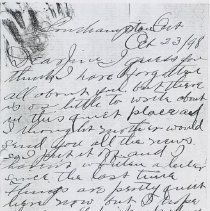 Southampton Ont
Oct 23/98
Dear Jine I guess you
think I have forgotten
all about you but there
is so little to write about
in this quiet place and
I thought mother would
send you all the news
since the last time
Things are pretty quiet
here now but I hope